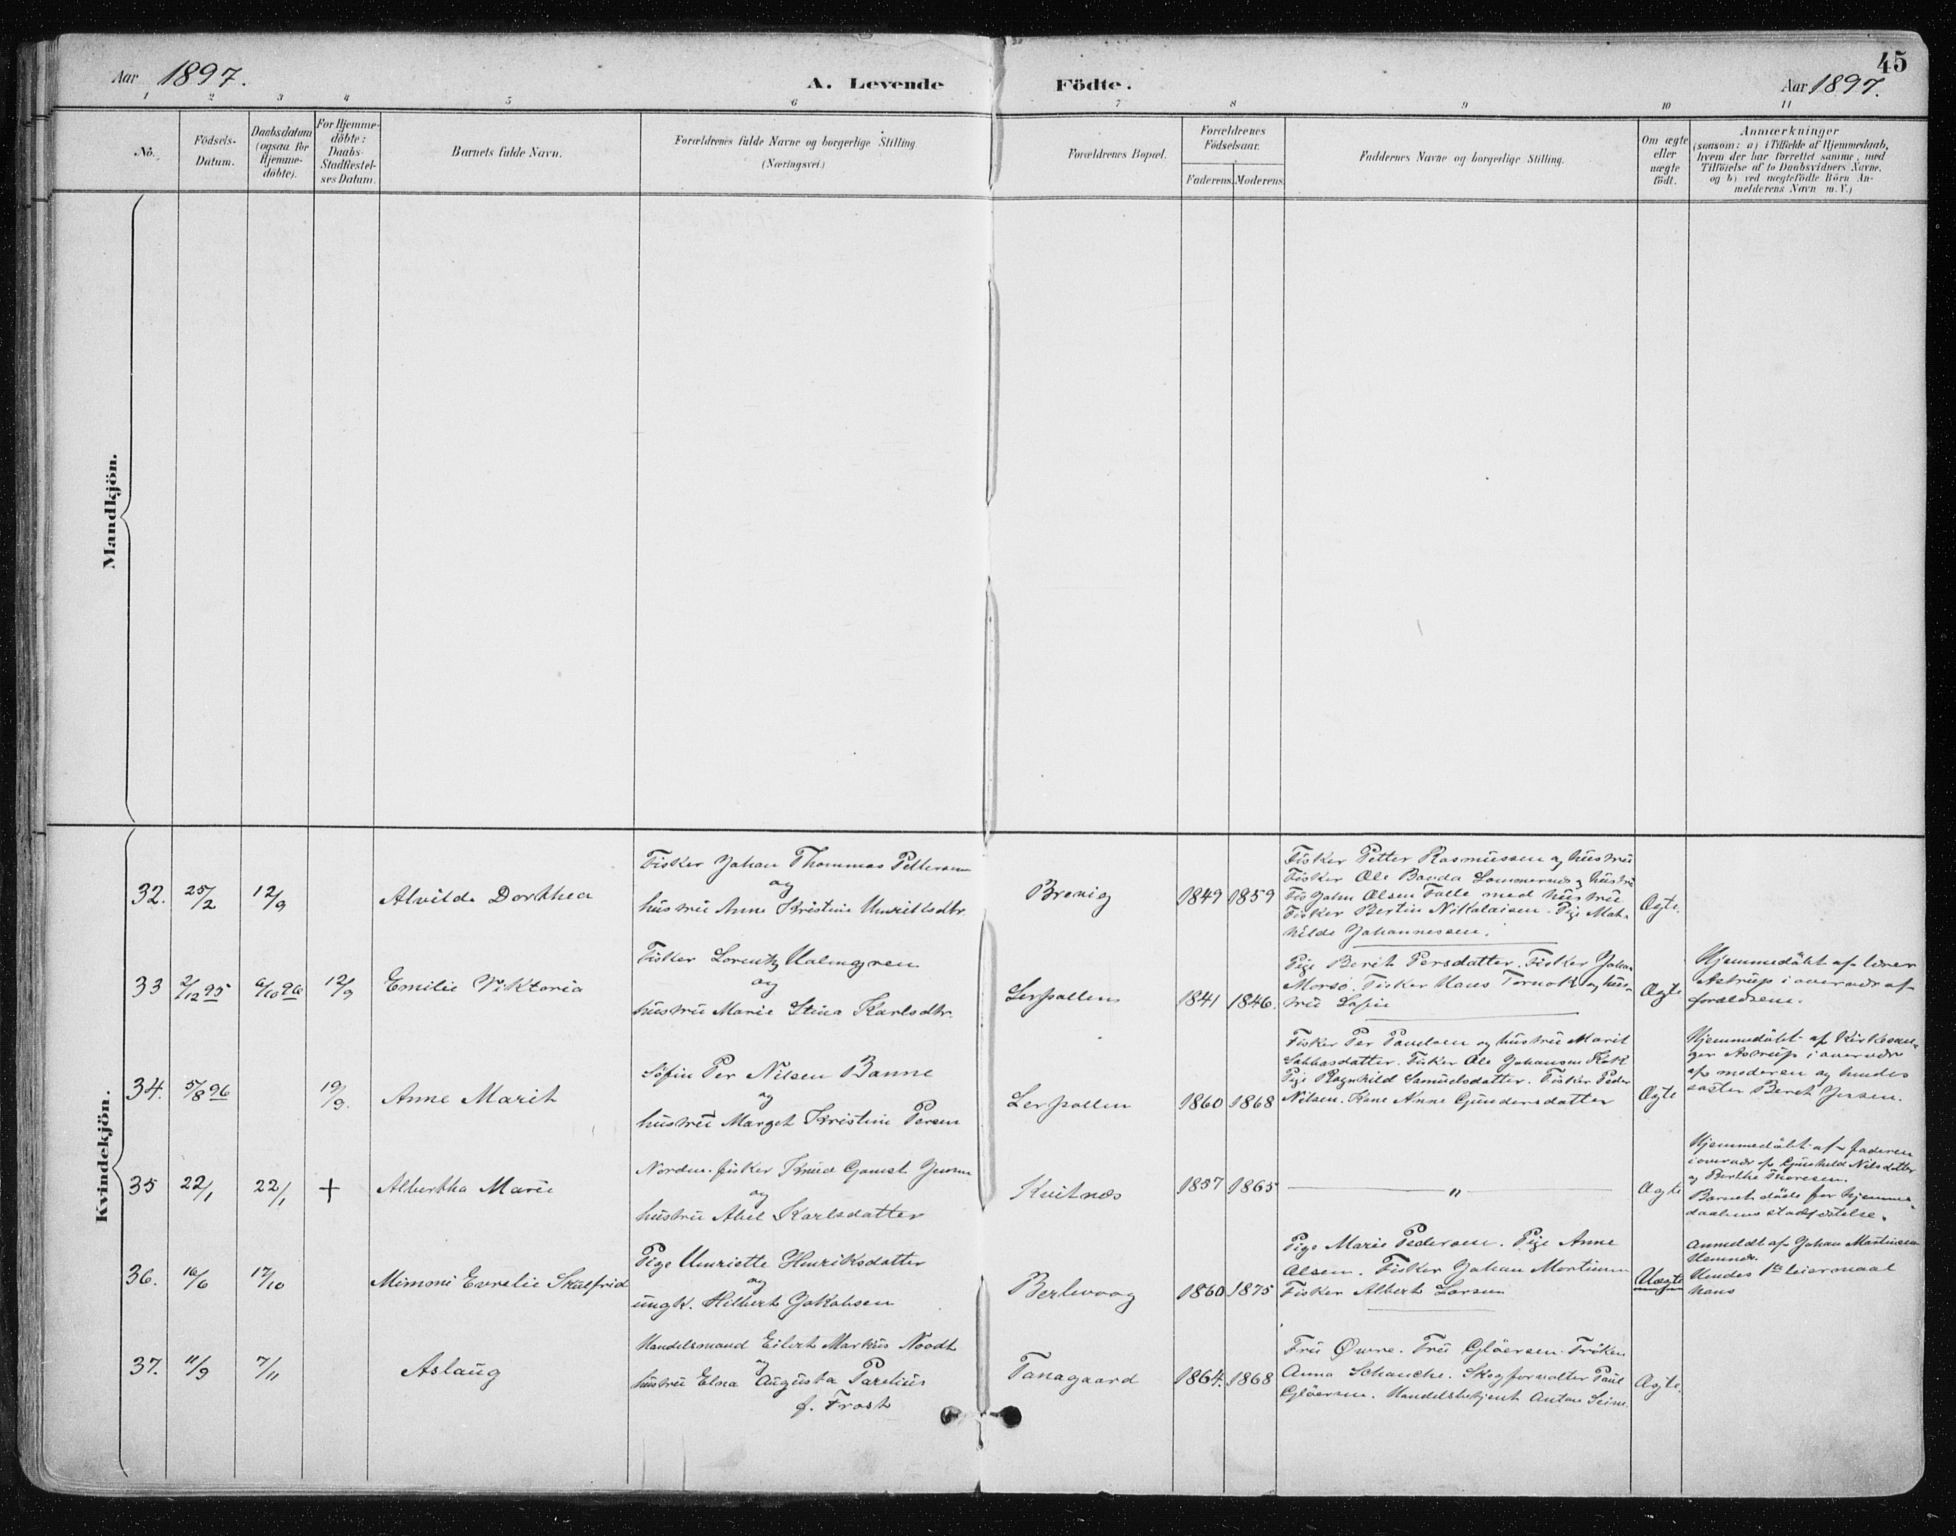 45
Aar 1897.
A. Levende Födte.
Aar 1897.
1 2 3 4 5 6 7 8 9 10 11
No.
Födsels-
Datum.
Daabsdatum
(ogsaa for
Hjemme-
döbte).
For Hjemme-
döbte:
Daabs-
Stadfæstel-
ses Datum.
Barnets fulde Navn.
Forældrenes fulde Navne og borgerlige Stilling
(Næringsvei)
Forældrenes Bopæl.
Forældrenes
Födselsaar.
Faderens. Moderens.
Faddernes Navne og borgerlige Stilling.
Om ægte
eller
uægte
födt.
Anmærkninger
(saasom: a) i Tilfælde af Hjemmedaab,
hvem der har forrettet samme, med
Tilföielse af to Daabsvidners Navne,
og b) ved uægtefödte Börn An-
melderens Navn m. V.)
Mandkjön.
Kvindekjön.
32. 25/2 12/9
Alvilde Dorthea
Fisker Johan Thommas Pettersen
og
hustru Anne Kristine Henriksdtr.
Brevig
1849 1859
Fisker Petter Rasmussen og hustru
Fisker Ole Banda Lammernes og hustru
Fis John Olsen Falle med hustru
Fisker Bertin Nikolaisen. Pige Mat-
hilde Johannessen.
Ægte.
33 2/12 95 6/10 96 12/9
Emilie Viktoria
Fisker Lorentz Halmgren
og
hustru Marie Stina Karlsdtr.
Lerpollen
1841 1846.
Pige Berit Persdatter. Fisker Johan
Morsö. Fisker Hans Tornok og hus-
tru Sofie
Ægte
Hjemmedöbt af lærer
Astrup i overvær af
forældrene.
34. 5/8 96 19/9.
Anne Marit
Söfin Per Nilsen Banne
og
hustru Marget Kristine Persen
Lerpollen
1860 1868
Fisker Per Paulsen og hustru Marit
Sabbasdatter. Fisker Ole Johansen Kok
Pige Ragnhild Samuelsdatter. Fisker Peder
Nilsen. Kone Anne Gundersdatter
Ægte
Hjemmedöbt af Kirkesan-
ger Astrup i overvær
af moderen og hendes
söster Beret Jessen.
35 22/1 22/1 +
Albertha Marie
Nordm. fisker Knud Gamst Jensen
og
hustru Abel Karlsdatter
Kvitnæs
1857 1865
"
Ægte
Hjemmedöbt af faderen
i overvær af Gunhild Nilsdatter
og Berthe Thoresen.
Barnet döde för hjemme-
daabens stadfæstelse.
36. 16/6 17/10
Mimoni Evrelie Skulfrid
Pige Henriette Henriksdatter
og
ungk. Hilbert Jakobsen
Berlevaag
1860 1875
Pige Marie Pedersen. Pige Anne
Olsen. Fisker Johan Mortinsen
Fisker Albert Larsen
Uægte
Anmeldt af Johan Martinsen
Hendes 1ste leiermaal
hans
37. 11/9 7/11
Aslaug
Handelsmand Eilert Markus Noodt
og
hustru Elna Augusta Parelius
f. Frost
Tanagaard
1864. 1868
Fru Øwre. Fru Gløersen. Fröken
Anna Schanche. Skogforvalter Paul
Gløersen. Handelsbetjent Anton Seim
Ægte.